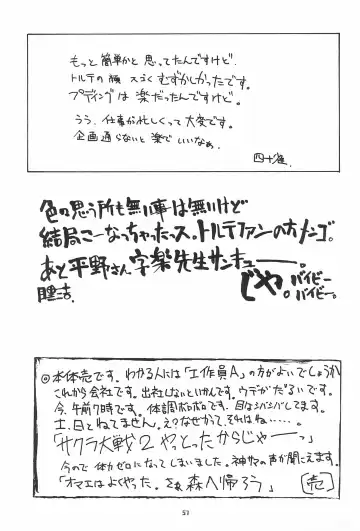 もっと簡単かと思ってたんですけど.
トルテの顔 スゴくむずかしかったです。
プディングは楽だったんですけど。
うう、仕事が忙しくって大変です。
企画通らないと楽でいいなぁ.
四十雀.
色々思う所も無い事は無いけど
結局こーなっちゃったっス。トルテファンのオナゴ。
あと平野さん 字楽先生サンキュー――。
じゃ。バイビー
バイビー。
◎本体売です。わかる人には「工作員A」の方がよいでしょうか
これから会社です。出社しないといかんです。ウデがだるいです。
今、午前7時です。体調ボロボロです。目はシバシバしてます。
土、日とねてません。え?なぜかって。それはね……。
「サクラ大戦2 やっとったからじゃーっ」
今ので体力ゼロになってしまいました。神サマの声が聞こえます。
「オマエはよくやった。さあ 森へ帰ろう」
売
53